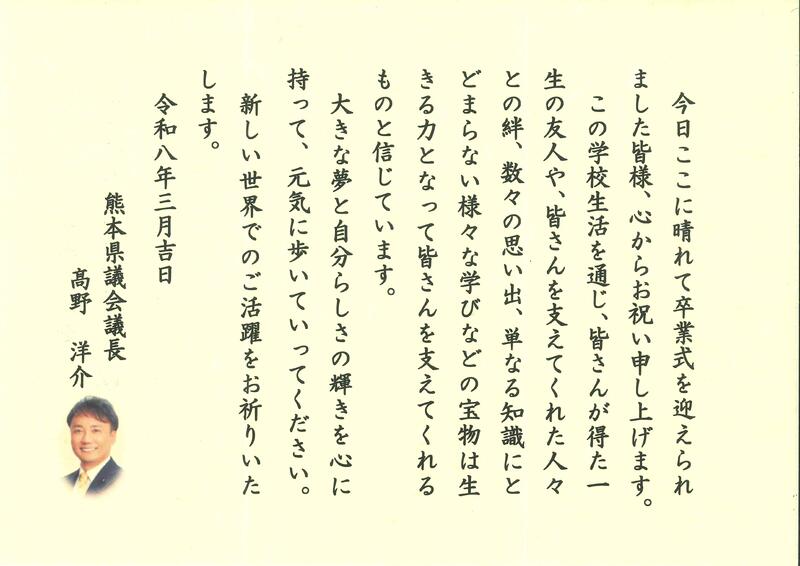 今日ここに晴れて卒業式を迎えられ
ました皆様、心からお祝い申し上げます。
この学校生活を通じ、皆さんが得た一
生の友人や、皆さんを支えてくれた人々
との絆、数々の思い出、単なる知識にと
どまらない様々な学びなどの宝物は生
きる力となって皆さんを支えてくれる
ものと信じています。
大きな夢と自分らしさの輝きを心に
持って、元気に歩いていってください。
新しい世界でのご活躍をお祈りいた
します。
令和八年三月吉日
熊本県議会議長
髙野 洋介